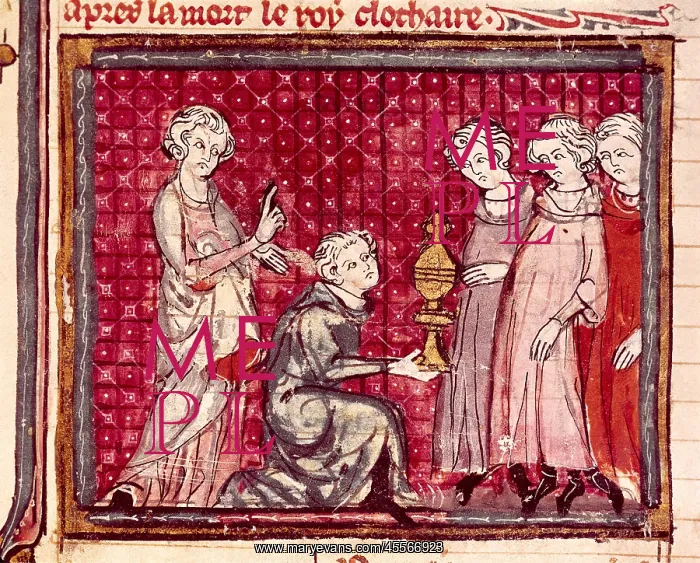 apres la mort le roy clothaire.
ME
PL
ME
PL
www.maryevans.com/45566923